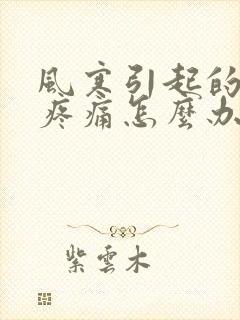 風寒引起的
疼痛怎麼办
紫雲木